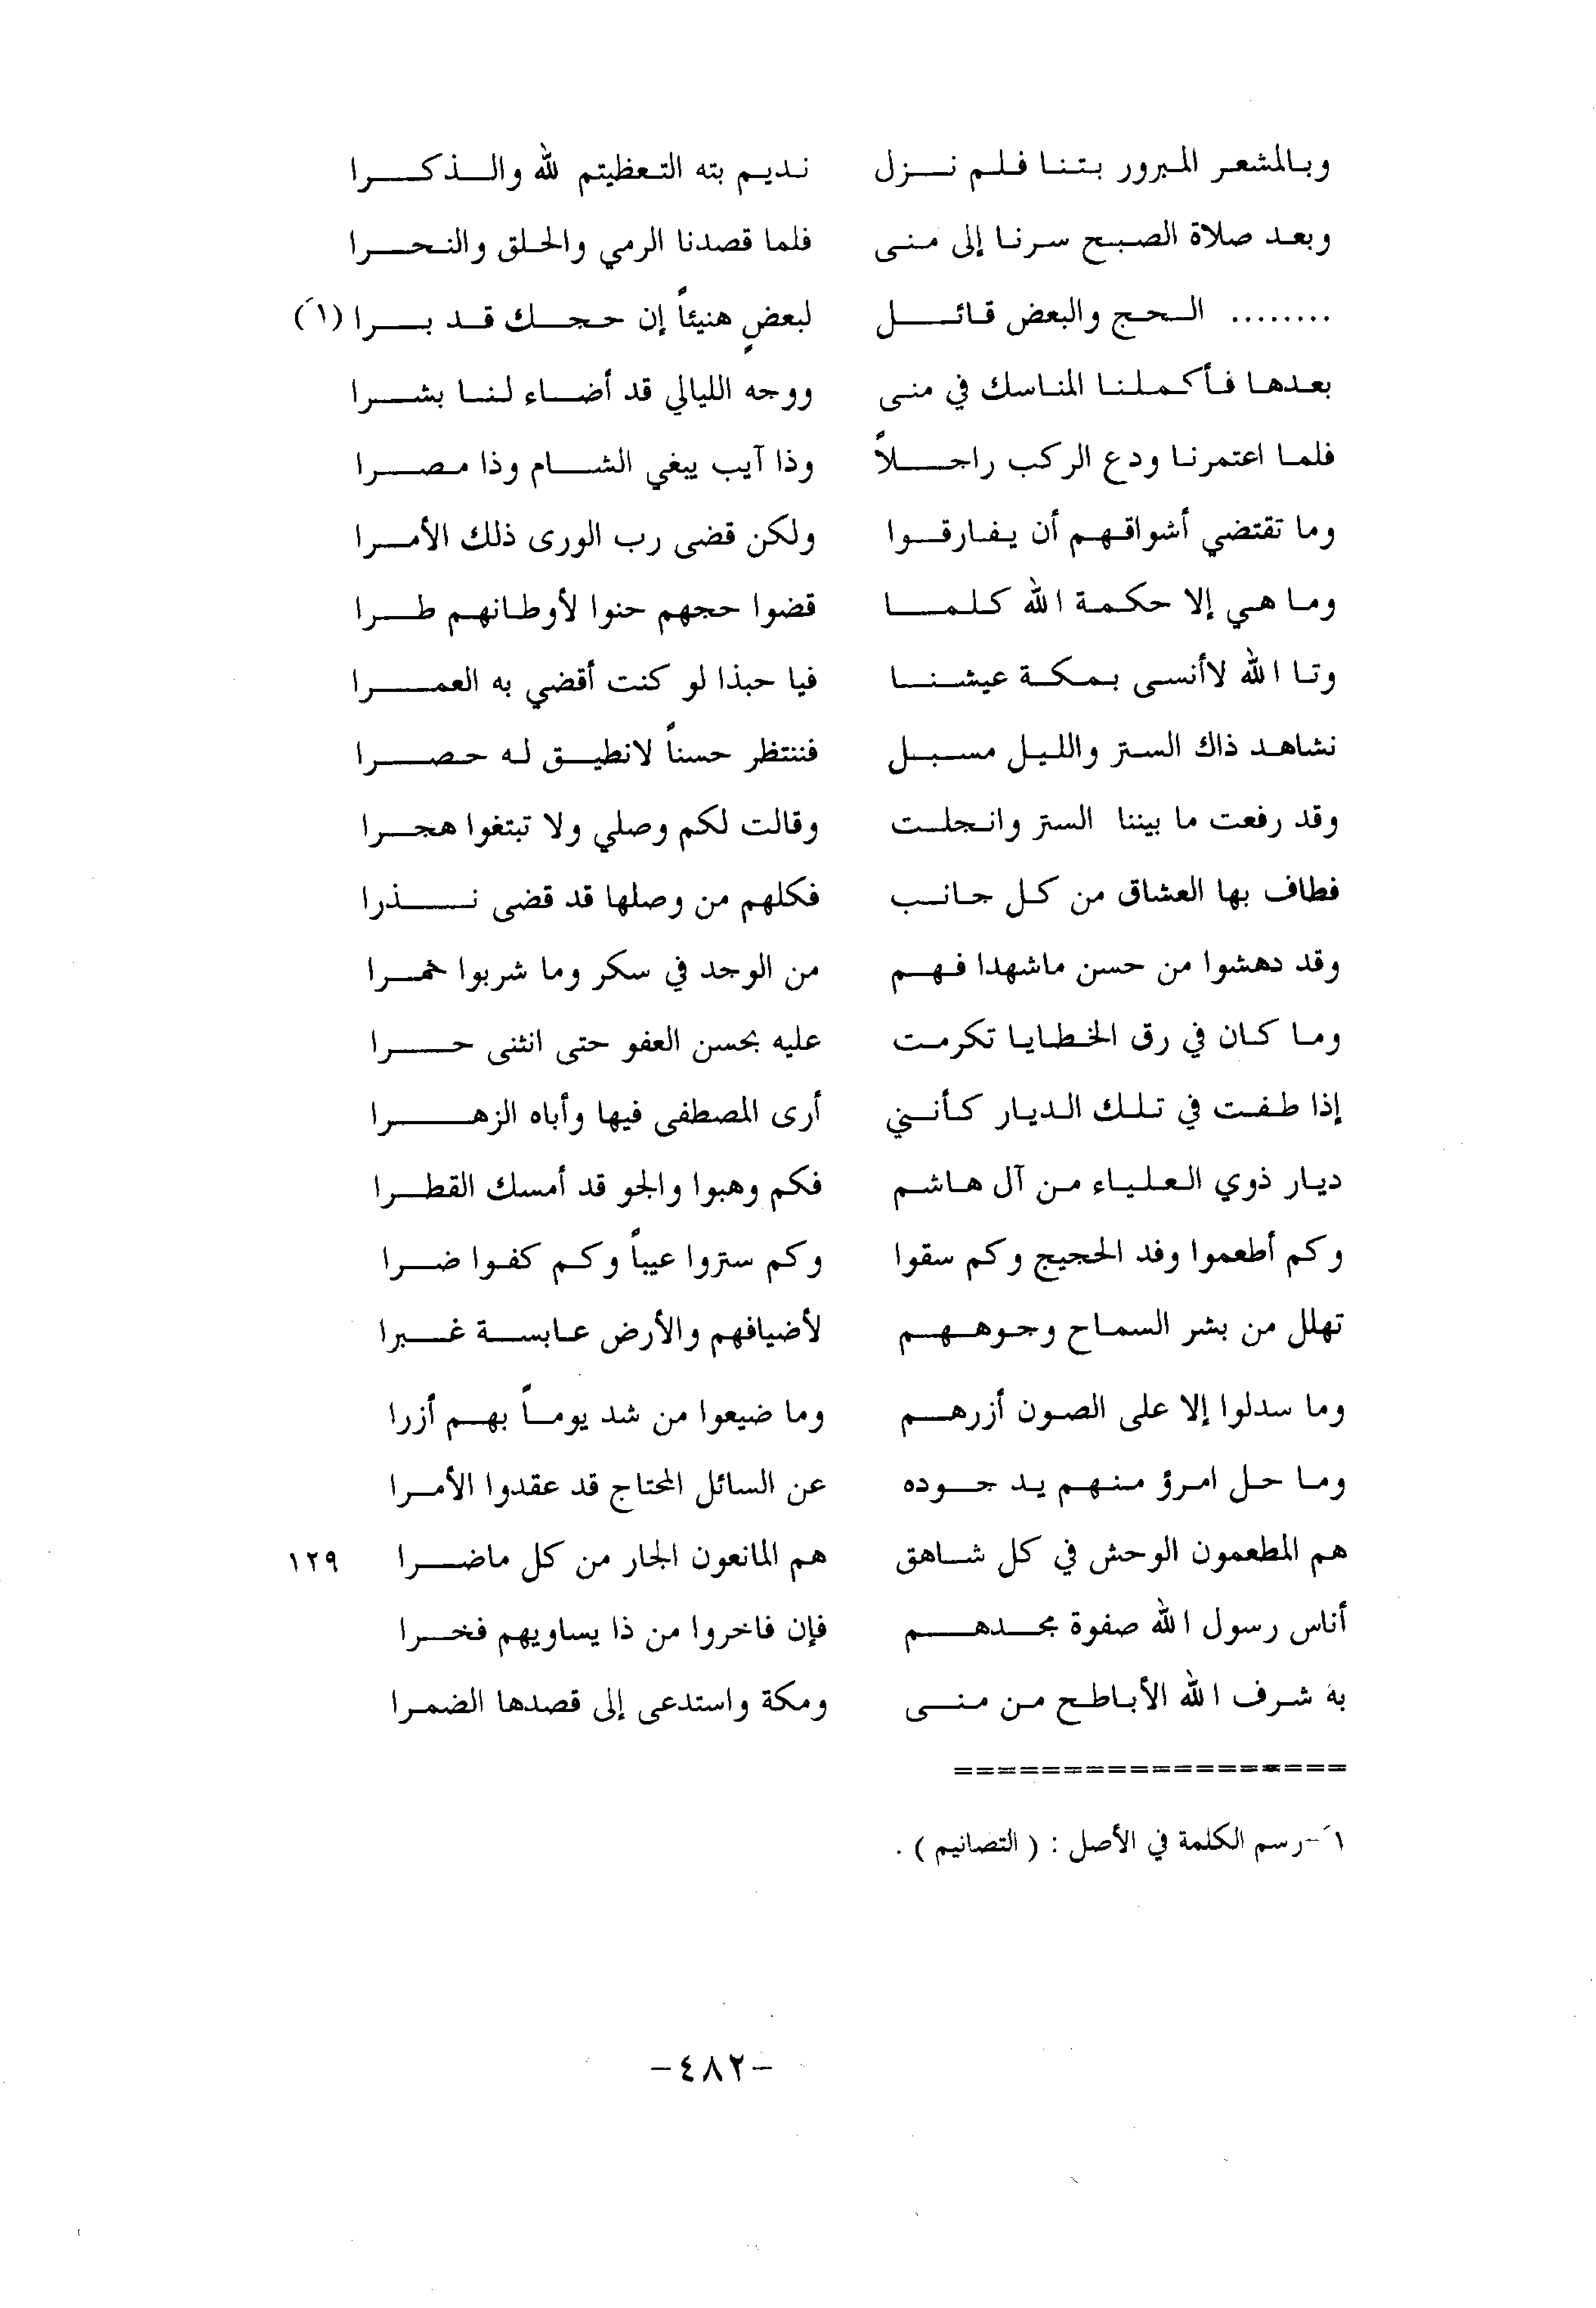 وبالمشعر المبرور بتنا فلم نزل نديم بته التعظيتم لله والذكرا
وبعد صلاة الصبح سرنا إلى منى فلما قصدنا الرمي والحلق والنحرا
........ الحج والبعض قائل لبعضٍ هنيئاً إن حجك قد برا (١َ)
بعدها فأكملنا المناسك في منى ووجه الليالي قد أضاء لنا بشرا
فلما اعتمرنا ودع الركب راحلاً وذا آيب يبغي الشام وذا مصرا
وما تقتضي أشواقهم أن يفارقوا ولكن قضى رب الورى ذلك الأمرا
وما هي إلا حكمة الله كلما قضوا حجهم حنوا لأوطانهم طرا
وتا الله لاأنسى بمكة عيشنا فيا حبذا لو كنت أقضي به العمرا
نشاهد ذاك الستر والليل مسبل فننتظر حسناً لانطيق له حصرا
وقد رفعت ما بيننا الستر وانجلت وقالت لكم وصلي ولا تبتغوا هجرا
فطاف بها العشاق من كل جانب فكلهم من وصلها قد قضى نذرا
وقد دهشوا من حسن ماشهدا فهم من الوجد في سكر وما شربوا خمرا
وما كان في رق الخطايا تكرمت عليه بحسن العفو حتى انثنى حرا
إذا طفت في تلك الديار كأنني أرى المصطفى فيها وأباه الزهرا
ديار ذوي العلياء من آل هاشم فكم وهبوا والجو قد أمسك القطرا
وكم أطعموا وفد الحجيج وكم سقوا وكم ستروا عيباً وكم كفوا ضرا
تهلل من بشر السماح وجوههم لأضيافهم والأرض عابسة غبرا
وما سدلوا إلا على الصون أزرهم وما ضيعوا من شد يوماً بهم أزرا
وما حل امرؤ منهم يد جوده عن السائل المحتاج قد عقدوا الأمرا
هم المطعمون الوحش في كل شاهق هم المانعون الجار من كل ماضرا ١٢٩
أناس رسول الله صفوة مجدهم فإن فاخروا من ذا يساويهم فخرا
به شرف الله الأباطح من منى ومكة واستدعى إلى قصدها الضمرا
==================
١َ-رسم الكلمة في الأصل : ( التصانيم ) .
-٤٨٢-